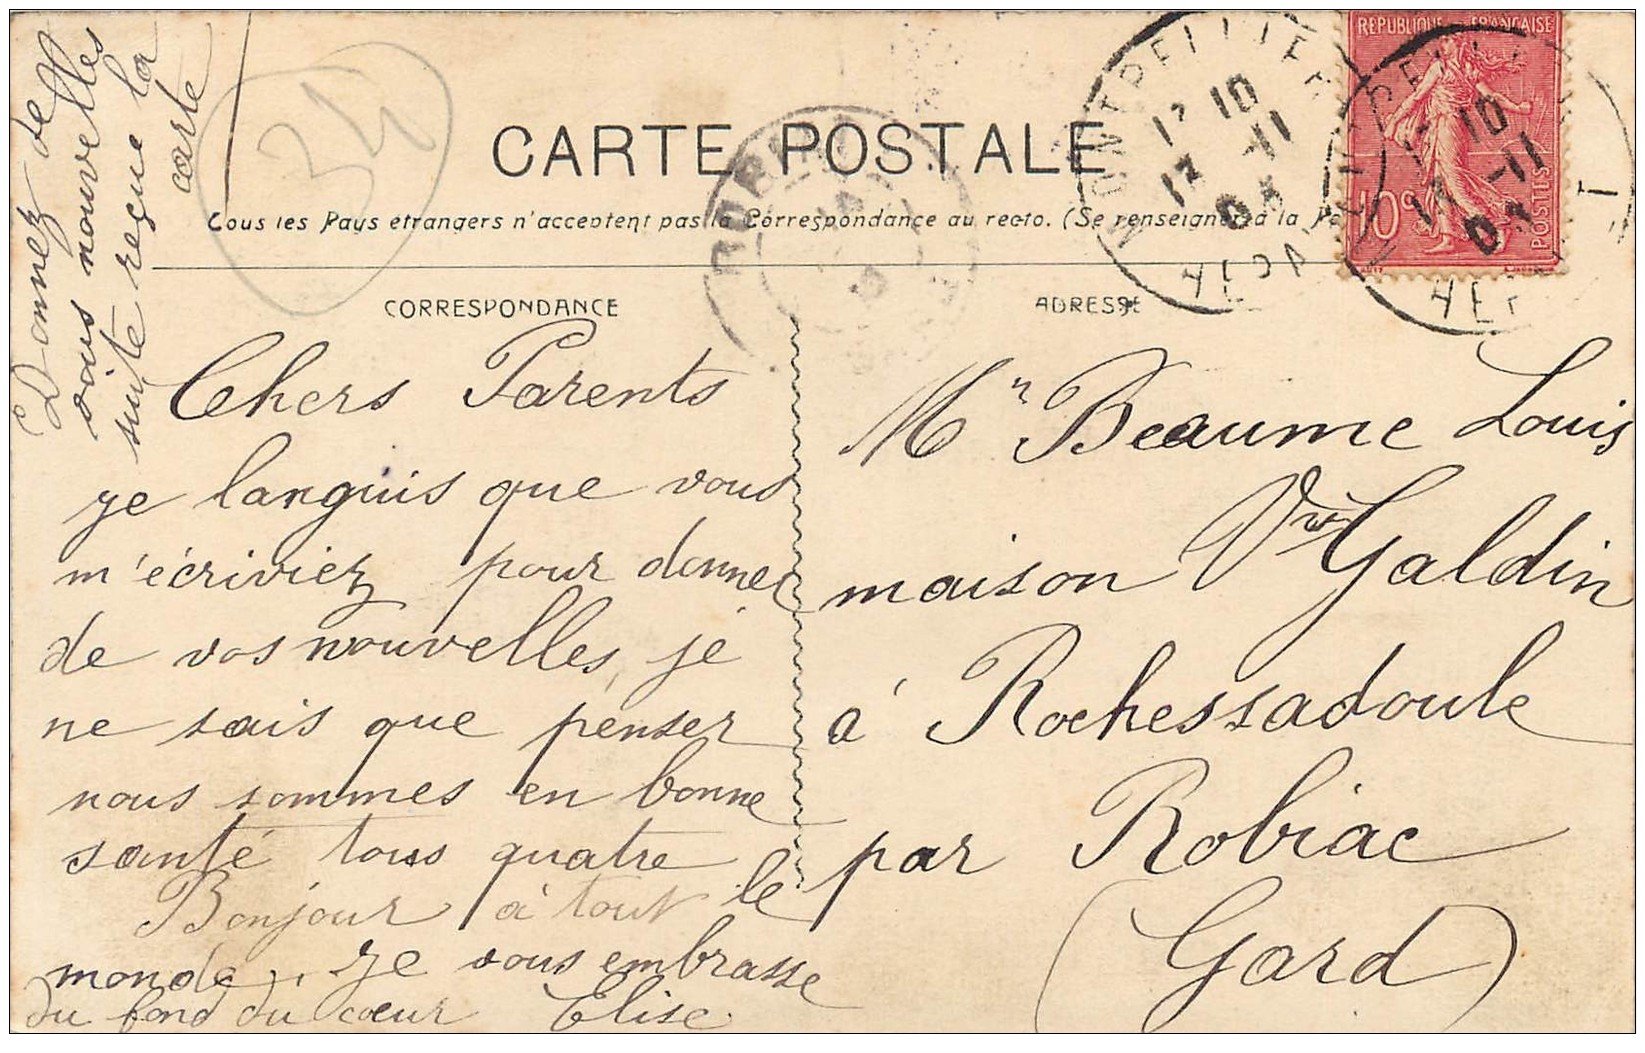 Donnez de
vous nouvelles
suite reçue la
carte
34
CARTE POSTALE
Tous les Pays étrangers n'acceptent pas la Correspondance au recto. (Se renseigner à la
REPUBLIQUE FRANÇAISE
10c
POSTES
MONTPELLIER
12 10
13 -11
HERAULT
10
-11
CORRESPONDANCE
ADRESSE
Chers Parents
je languis que vous
m'écriviez pour donner
de vos nouvelles, je
ne sais que penser
nous sommes en bonne
santé tous quatre
Bonjour à tout le
monde. Je vous embrasse
du fond du cœur Elise
Mr Beaume Louis
maison Vve Galdin
à Rochessadoule
par Robiac
(Gard)